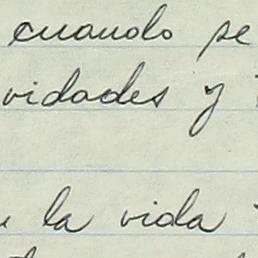 cuando se
vidades y
la vida